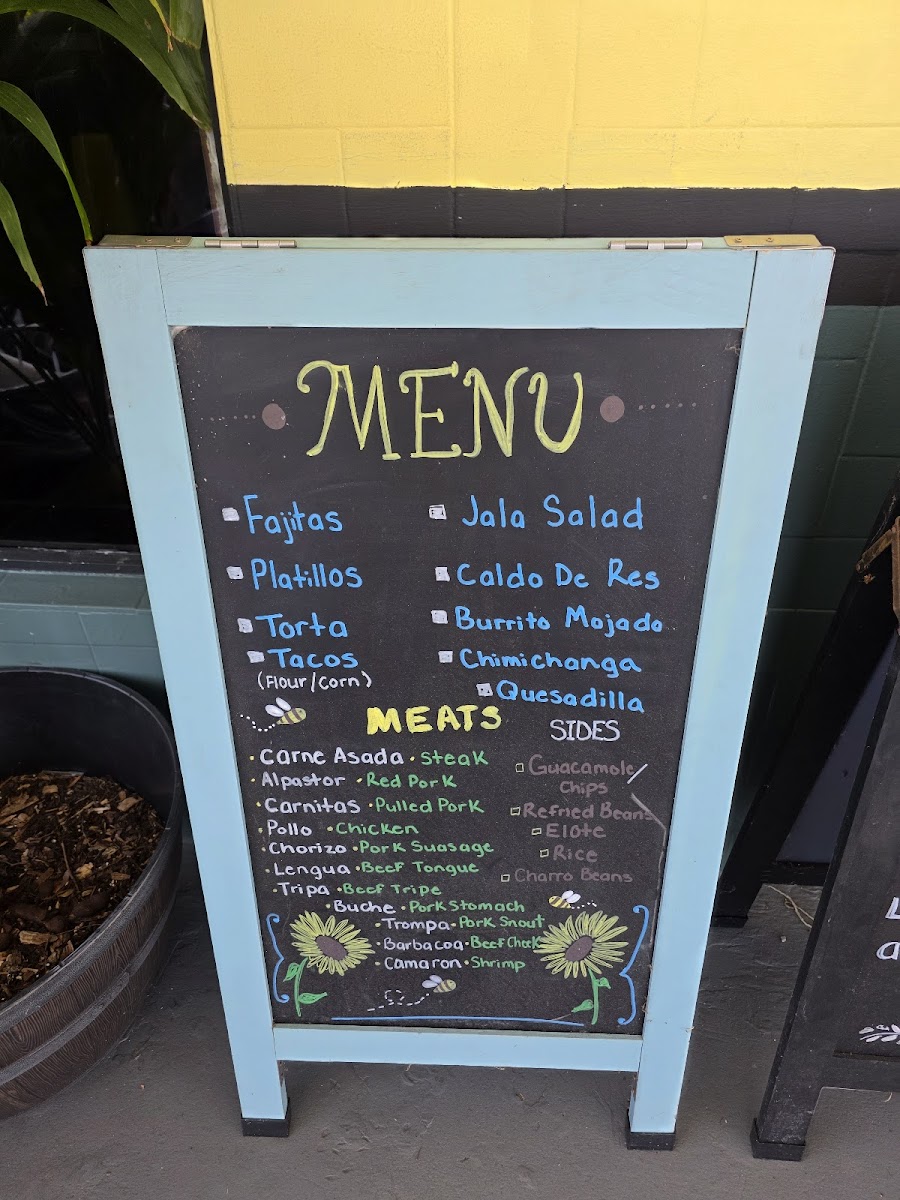 MENU
Fajitas
Platillos
Torta
Tacos
(Flour/Corn)
Jala Salad
Caldo De Res
Burrito Mojado
Chimichanga
Quesadilla
MEATS
Carne Asada · Steak
Alpastor · Red Pork
Carnitas · Pulled Pork
Pollo · Chicken
Chorizo · Pork Suasage
Lengua · Beef Tongue
Tripa · Beef Tripe
Buche · Pork Stomach
Trompa · Pork Snout
Barbacoa · Beef Cheek
Camaron · Shrimp
SIDES
Guacamole/
Chips
Refried Beans
Elote
Rice
Charro Beans